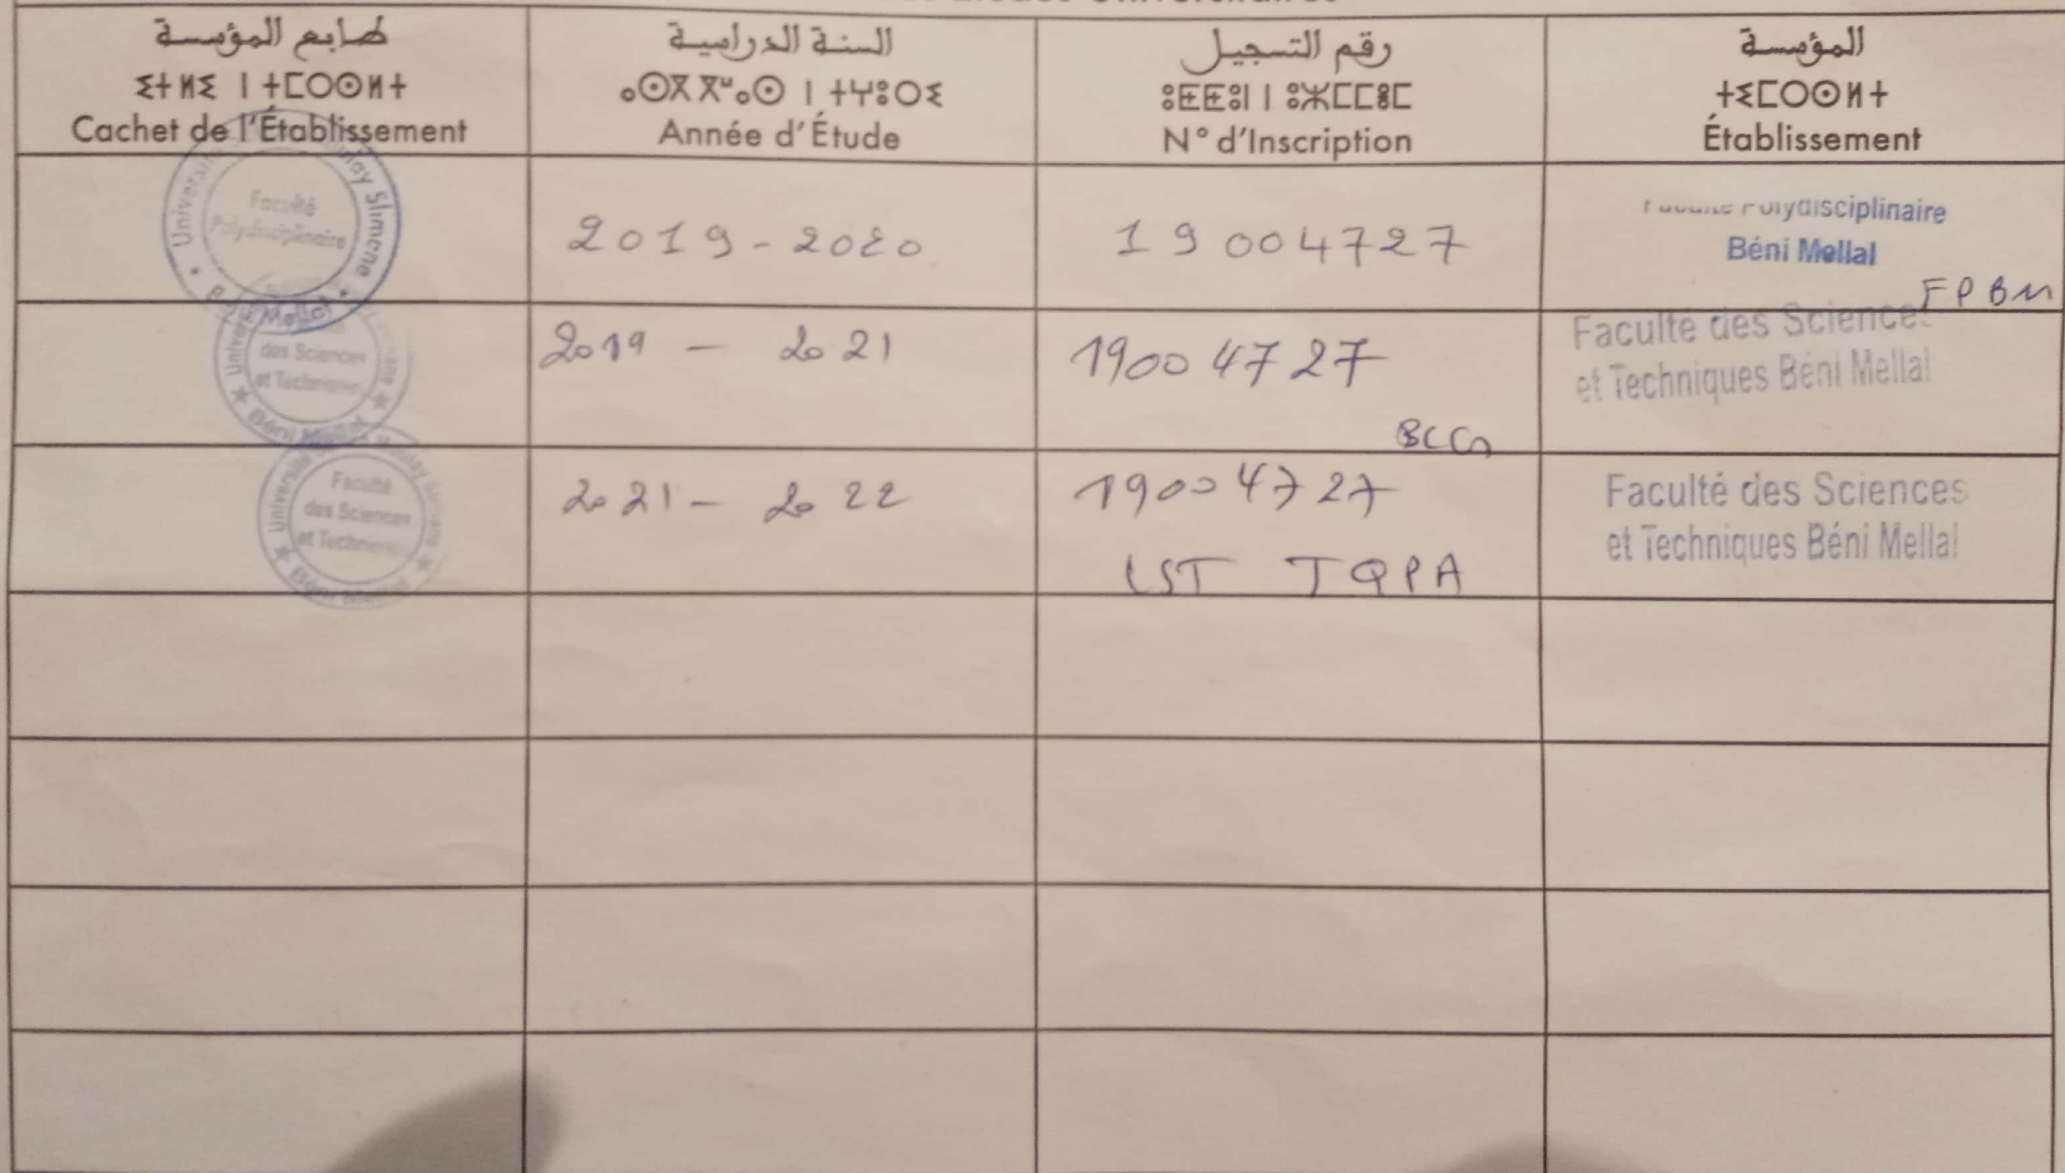 طابع المؤسسة
ⵉⵜⵍⵉ ⵏ ⵜⵎⵔⵙⵍⵜ
Cachet de l'Établissement
السنة الدراسية
ⴰⵙⴳⴳⵯⴰⵙ ⵏ ⵜⵖⵓⵔⵉ
Année d'Étude
رقم التسجيل
ⵓⵟⵟⵓⵏ ⵏ ⵓⵣⵎⵎⵓⵎ
N° d'Inscription
المؤسسة
ⵜⵉⵎⵔⵙⵍⵜ
Établissement
Faculté
Polydisciplinaire
2019-2020
19004727
Polydisciplinaire
Béni Mellal
FPBM
des Sciences
et Techniques
Béni Mellal
2019 - 2021
19004727
BCG
Faculté des Sciences
et Techniques Béni Mellal
Université
Faculté
des Sciences
et Techniques
Béni Mellal
2021 - 2022
19004727
LST TQPA
Faculté des Sciences
et Techniques Béni Mellal